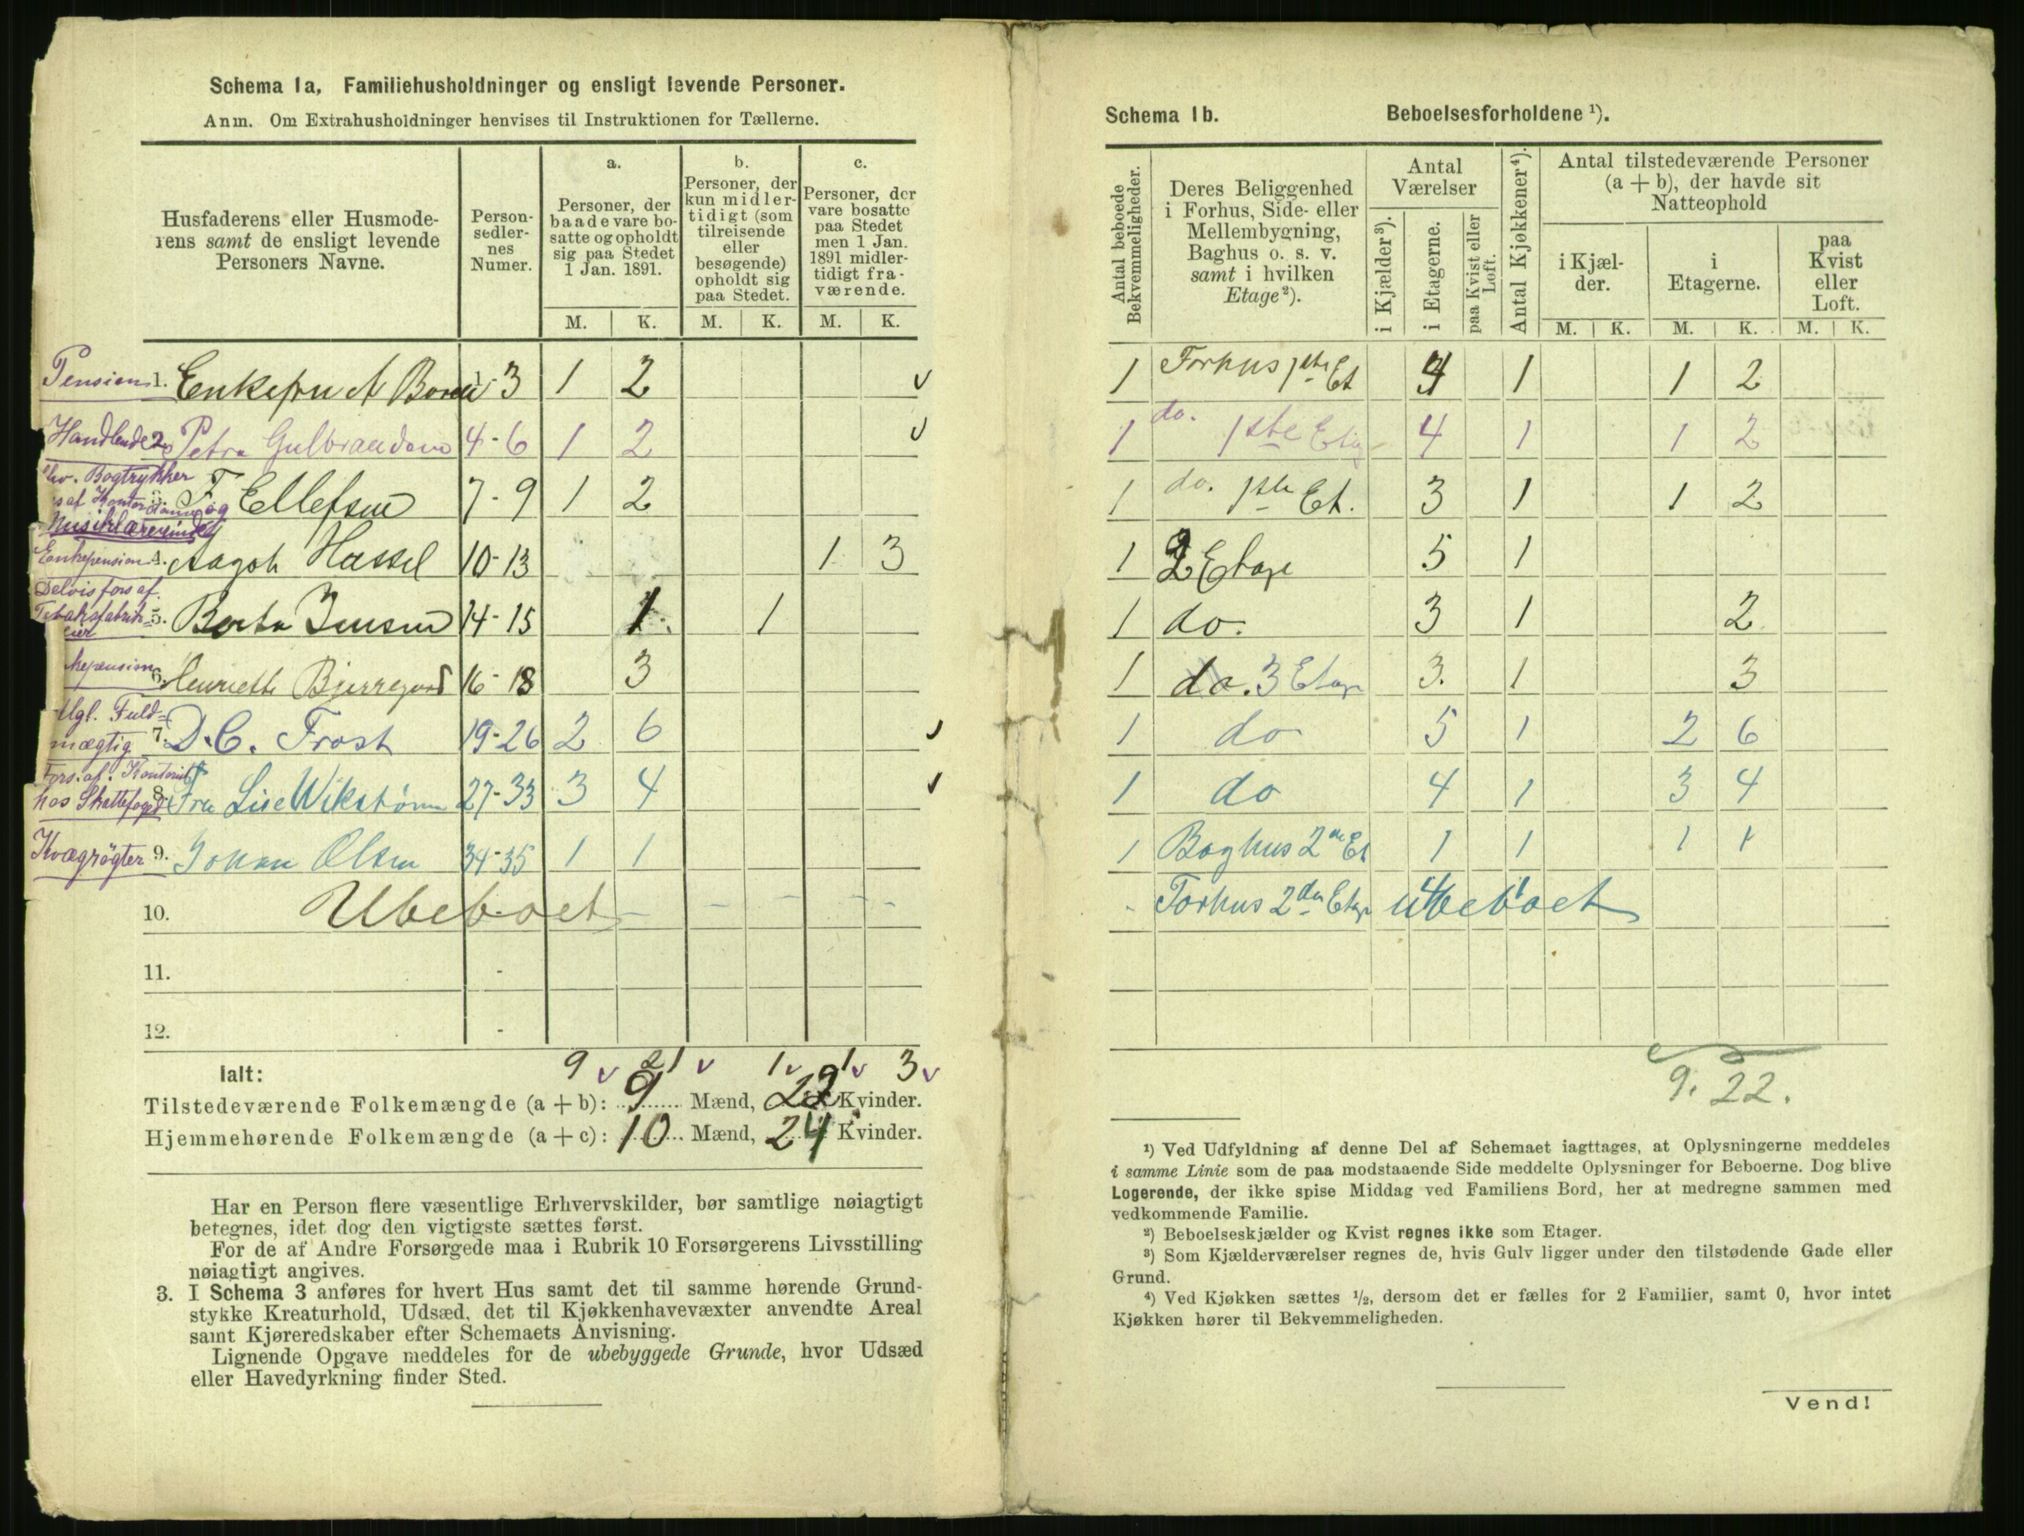 Schema 1a. Familiehusholdninger og ensligt levende Personer.
Anm. Om Extrahusholdninger henvises til Instruktionen for Tællerne.
Husfaderens eller Husmoderens samt de ensligt levende Personers Navne.
Personsedlernes Numer.
a. Personer, der baade vare bosatte og opholdt sig paa Stedet 1 Jan. 1891.
b. Personer, der kun midlertidigt (som tilreisende eller besøgende) opholdt sig paa Stedet.
c. Personer, der vare bosatte paa Stedet men 1 Jan. 1891 midlertidigt fraværende.
M. K. M. K. M. K.
Pension 1. Enkefru A 1-3 1 2 v
Handlende 2. Petra Gulbrandsen 4-6 1 2 v
Bogtrykker
af Kontor og 3. F Ellefsen 7-9 1 2
Musiklærerinde
Enkepension 4. Aagot Hassel 10-13 1 3
Delvis fors af
Tobaksfabrik= eier 5. Berta Jensen 14-15 1 1
kepension 6. Henriette Bjerregaard 16-18 3
Kgl. Fuld=
mægtig 7. D. C. Frost 19-26 2 6 v
Fors. af. Kontorist
hos Skattefoged 8. Fru Lise Wikstrøm 27-33 3 4 v
Kvægrøgter 9. Johan Olsen 34-35 1 1
10. Ubeboet - - - - -
11. -
12. -
9 v 21 v 1 v 1 v 3 v
Ialt:
Tilstedeværende Folkemængde (a + b): 9 Mænd, 22 Kvinder.
Hjemmehørende Folkemængde (a + c): 10 Mænd, 24 Kvinder.
Har en Person flere væsentlige Erhvervskilder, bør samtlige nøiagtigt
betegnes, idet dog den vigtigste sættes først.
For de af Andre Forsørgede maa i Rubrik 10 Forsørgerens Livsstilling
nøiagtigt angives.
3. I Schema 3 anføres for hvert Hus samt det til samme hørende Grund-
stykke Kreaturhold, Udsæd, det til Kjøkkenhavevæxter anvendte Areal
samt Kjøreredskaber efter Schemaets Anvisning.
Lignende Opgave meddeles for de ubebyggede Grunde, hvor Udsæd
eller Havedyrkning finder Sted.
Schema 1b. Beboelsesforholdene ¹).
Antal beboede Bekvemmeligheder.
Deres Beliggenhed i Forhus, Side- eller Mellembygning, Baghus o. s. v. samt i hvilken Etage²).
Antal Værelser
i Kjælder³).
i Etagerne.
paa Kvist eller Loft.
Antal Kjøkkener⁴).
Antal tilstedeværende Personer (a + b), der havde sit Natteophold
i Kjælder. i Etagerne. paa Kvist eller Loft.
M. K. M. K. M. K.
1 Forhus 1ste Et 4 1 1 2
1 do. 1ste Etag 4 1 1 2
1 do. 1ste Et. 3 1 1 2
1 2 Etage 5 1
1 do. 3 1 2
1 do. 3 Etage 3. 1 3
1 do 5 1 2 6
1 do 4 1 3 4
1 Baghus 2de Et 1 1 1 1
- Forhus 2den Etage 4 1 ubeboet
9. 22.
¹) Ved Udfyldning af denne Del af Schemaet iagttages, at Oplysningerne meddeles
i samme Linie som de paa modstaaende Side meddelte Oplysninger for Beboerne. Dog blive
Logerende, der ikke spise Middag ved Familiens Bord, her at medregne sammen med
vedkommende Familie.
²) Beboelseskjælder og Kvist regnes ikke som Etager.
³) Som Kjælderværelser regnes de, hvis Gulv ligger under den tilstødende Gade eller
Grund.
⁴) Ved Kjøkken sættes ½, dersom det er fælles for 2 Familier, samt 0, hvor intet
Kjøkken hører til Bekvemmeligheden.
Vend!